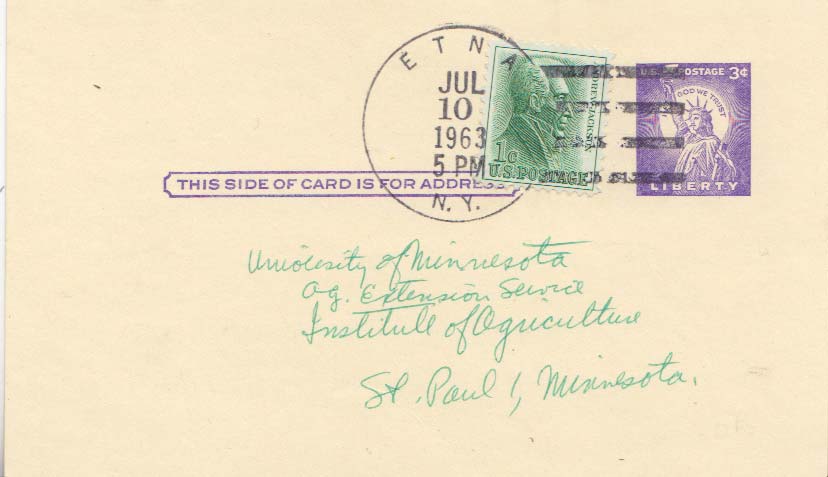 ETNA
JUL
10
1963
5 PM
N.Y.
ANDREW JACKSON
1¢
U.S. POSTAGE
U.S. POSTAGE 3¢
IN GOD WE TRUST
LIBERTY
THIS SIDE OF CARD IS FOR ADDRESS
University of Minnesota
Ag. Extension Service
Institute of Agriculture
St. Paul 1, Minnesota.